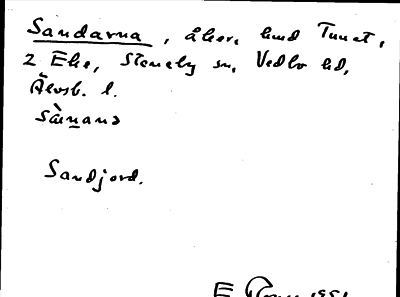 Sandarna, åker, hmd Tunet,
2 Ehe, Steneby sn, Vedbo hd,
Älvsb. l.
sàṉana
Sandjord.
E 1951